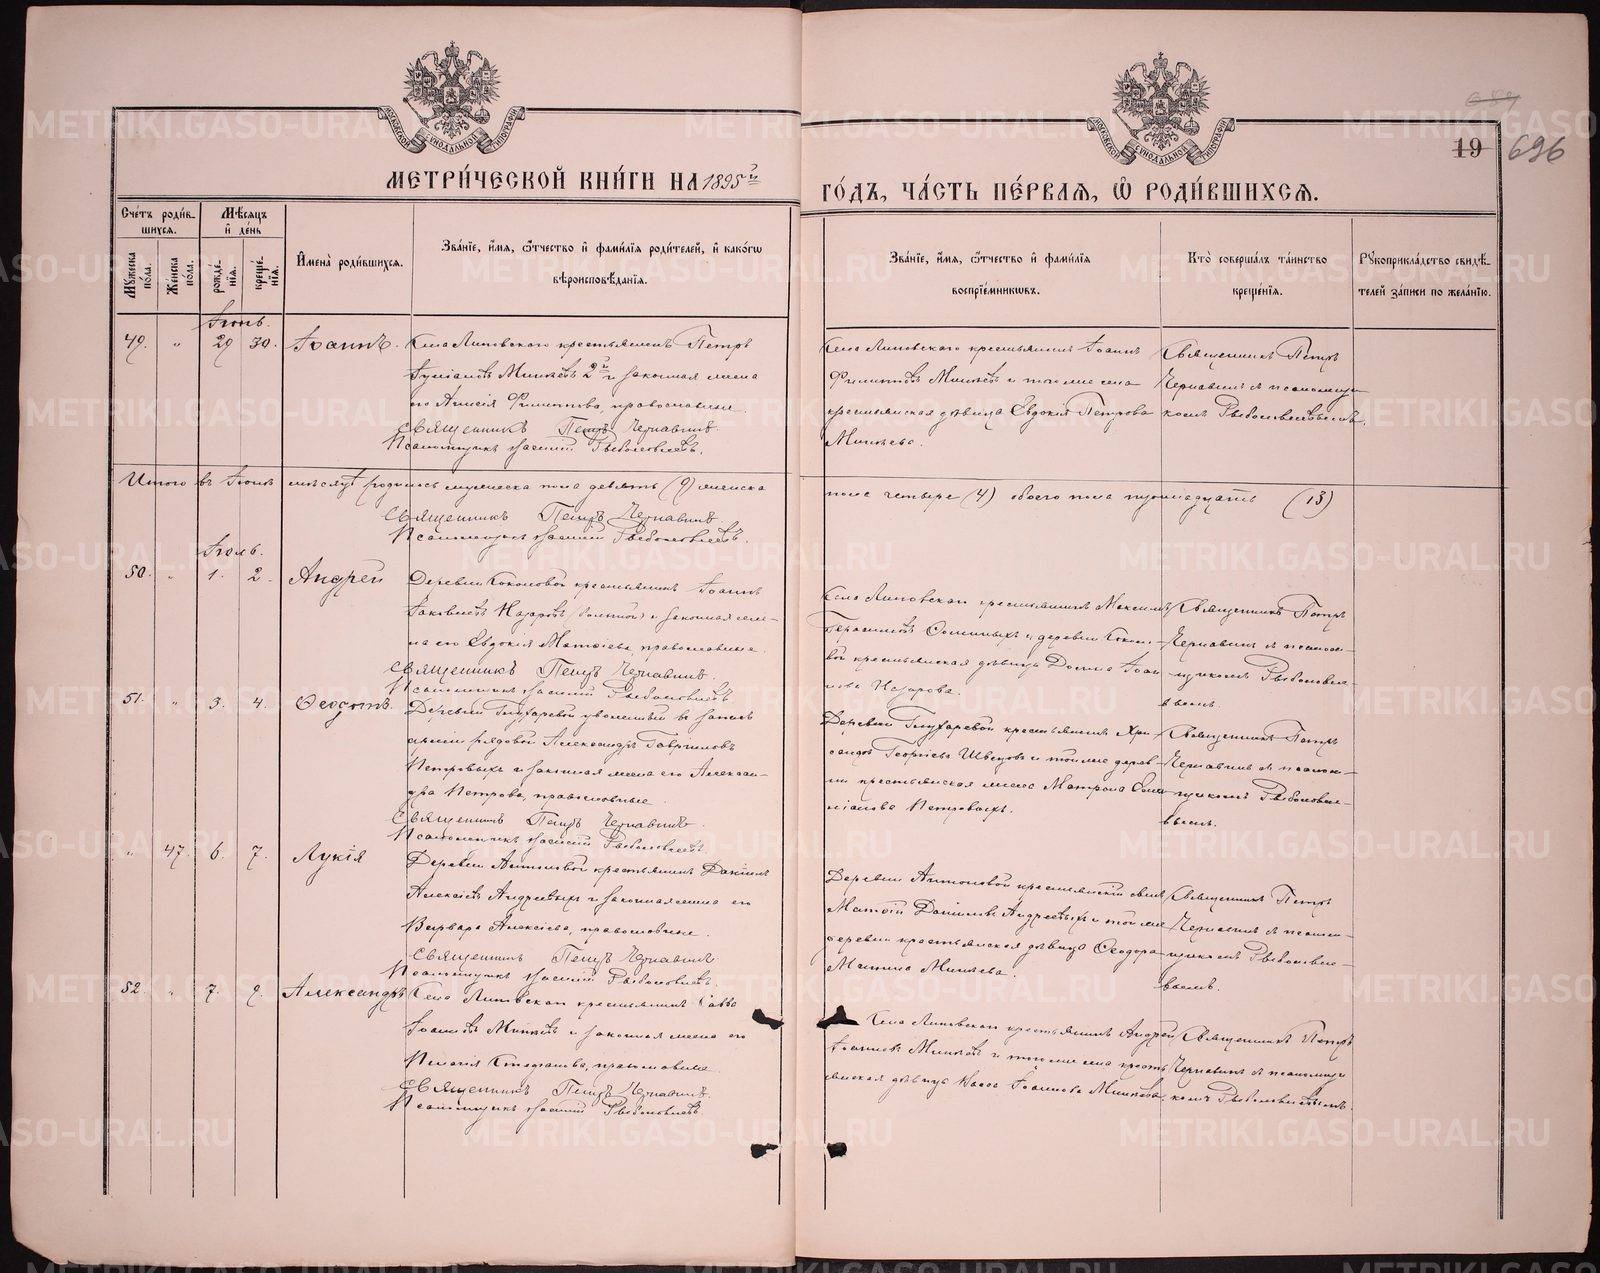 МОСКОВСКОЙ СѴНОДАЛЬНОЙ ТИПОГРАФІИ
МОСКОВСКОЙ СѴНОДАЛЬНОЙ ТИПОГРАФІИ
19 696
МЕТРИ́ЧЕСКОЙ КНИ́ГИ НА 1895й
ГО́ДЪ, ЧА́СТЬ ПЕ́РВАѦ, Ѡ РОДИ́ВШИХСѦ.
Сче́тъ роди́в-
шихся.
Мѣ́сяцъ
и де́нь
Му́жеска по́ла.
Же́нска по́ла.
рожде́-нія.
креще́-нія.
Имена̀ роди́вшихся.
Зва́ніе, и́мя, ѻ́тчество и фами́лія роди́телей, и како́гѡ
вѣроисповѣ́данія.
Зва́ніе, и́мя, ѻ́тчество и фами́лія
воспріе́мникѡвъ.
Кто̀ соверша́лъ та́инство
креще́нія.
Рꙋкоприкла́дство свидѣ́-
телей за́писи по жела́нію.
Іюнь.
49. " 29 30. Іоаннъ. Села Липовскаго крестьянинъ Петръ
Минѣевъ 2й и законная жена
его Анисія Филиппова, православные.
Священникъ Петръ Чернавинъ.
Псаломщикъ Василій Рыболовлевъ.
Села Липовскаго крестьянинъ Іоаннъ
Филипповъ Минѣевъ и того же села
крестьянская дѣвица Евдокія Петрова
Минѣева.
Священникъ Петръ
Чернавинъ съ псаломщи-
комъ Рыболовлевымъ.
Итого въ Іюнѣ мѣсяцѣ родилось мужеска пола девять (9) женска
пола четыре (4) обоего пола тринадцать (13)
Священникъ Петръ Чернавинъ.
Псаломщикъ Василій Рыболовлевъ.
Іюль.
50. " 1. 2. Андрей Деревни крестьянинъ Іоаннъ
Іаковлевъ Назаровъ и законная же-
на его Евдокія Матѳіева, православные.
Священникъ Петръ Чернавинъ.
Псаломщикъ Василій Рыболовлевъ
Села Липовскаго крестьянинъ Максимъ
Герасимовъ и деревни
крестьянская дѣвица Іоан-
нова Назарова.
Священникъ Петръ
Чернавинъ съ псалом-
щикомъ Рыболовле-
вымъ.
51. " 3. 4. Ѳеодотъ. Деревни Глухаревой уволенный въ запасъ
арміи рядовой Александръ Гавріиловъ
Петровыхъ и законная жена его Алексан-
дра Петрова, православные.
Священникъ Петръ Чернавинъ.
Псаломщикъ Василій Рыболовлевъ
Деревни Глухаревой крестьянинъ Хри-
санѳъ Георгіевъ Швецовъ и той же дерев-
ни крестьянская жена Матрона
Петровыхъ.
Священникъ Петръ
Чернавинъ съ псалом-
щикомъ Рыболовле-
вымъ.
" 47. 6. 7. Лукія Деревни Антоновой крестьянинъ Даніилъ
Алексіевъ Андреевыхъ и законная жена его
Варвара Алексіева, православные.
Священникъ Петръ Чернавинъ
Псаломщикъ Василій Рыболовлевъ.
Деревни Антоновой крестьянскій сынъ
Матѳій Даніиловъ Андреевыхъ и той же
деревни крестьянская дѣвица Ѳеодора
Минѣева.
Священникъ Петръ
Чернавинъ съ псалом-
щикомъ Рыболовле-
вымъ.
52. " 7. 9. Александръ Села Липовскаго крестьянинъ Савва
Іоанновъ Минѣевъ и законная жена его
Пелагія Стефанова, православные.
Священникъ Петръ Чернавинъ.
Псаломщикъ Василій Рыболовлевъ.
Села Липовскаго крестьянинъ Андрей
Іоанновъ Минѣевъ и того же села кресть-
янская дѣвица Іоаннова Минѣева.
Священникъ Петръ
Чернавинъ съ псаломщи-
комъ Рыболовлевымъ.
METRIKI.GASO-URAL.RU